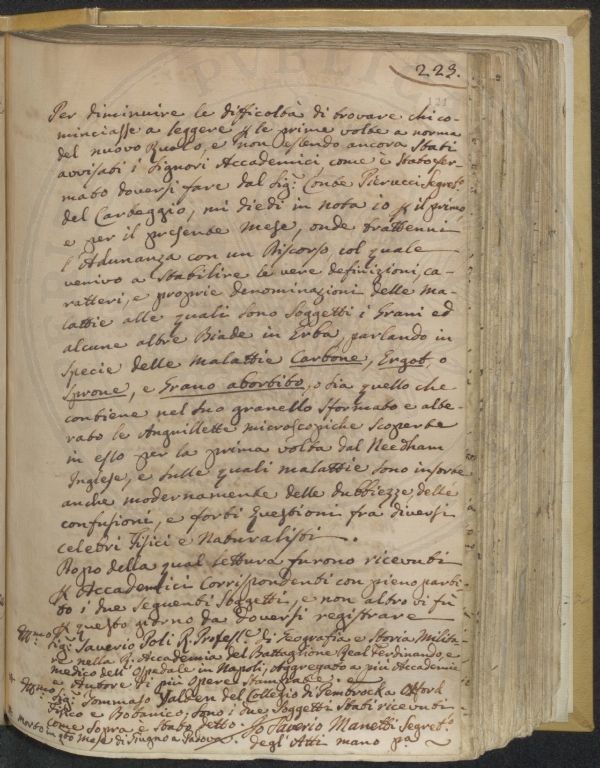 223.
Per diminuire le difficoltà di trovare chi co-
minciasse a leggere p le prime volte a norma
del nuovo Ruolo, e non essendo ancora stati
avvisati i Signori Accademici come è stato fer-
mato doversi fare dal Sig.r Conte Pierucci Segret.o
del Carteggio, mi diedi in nota io p il primo,
e per il presente mese, onde trattenni
l'Adunanza con un Discorso, col quale
venivo a stabilire le vere definizioni, ca-
ratteri, e proprie denominazioni delle ma-
lattie alle quali sono soggetti i Grani ed
alcune altre Biade in Erba, parlando in
specie delle malattie Carbone, Ergot, o
Sprone, e Grano abortito, o sia quello che
contiene nel suo granello sformato e alte-
rato le Anguillette microscopiche scoperte
in esso per la prima volta dal Needham
Inglese, e sulle quali malattie sono insorte
anche modernamente delle dubbiezze, delle
confusioni, e forti questioni fra diversi
celebri Fisici e Naturalisti.
Dopo della qual lettura furono ricevuti
p Accademici Corrispondenti con pieno parti-
to i due seguenti Soggetti, e non altro vi fù
p questo giorno da doversi registrare
Sig.r Saverio Poli R. Profess.e di Geografia e Storia Milita-
re nella R. Accademia del Battaglione Real Ferdinando, e
Medico dell'Ospedale in Napoli, aggregato a più Accademie
e Autore di più Opere stampate. e
Sig.r Tommaso del Collegio di Pembrock a Oxford
Fisico e Botanico; sono i due Soggetti stati ricevuti
come sopra è stato detto. Io Saverio Manetti Segret.o
degli Atti mano pa
morto in qto mese di Giugno a Padova.